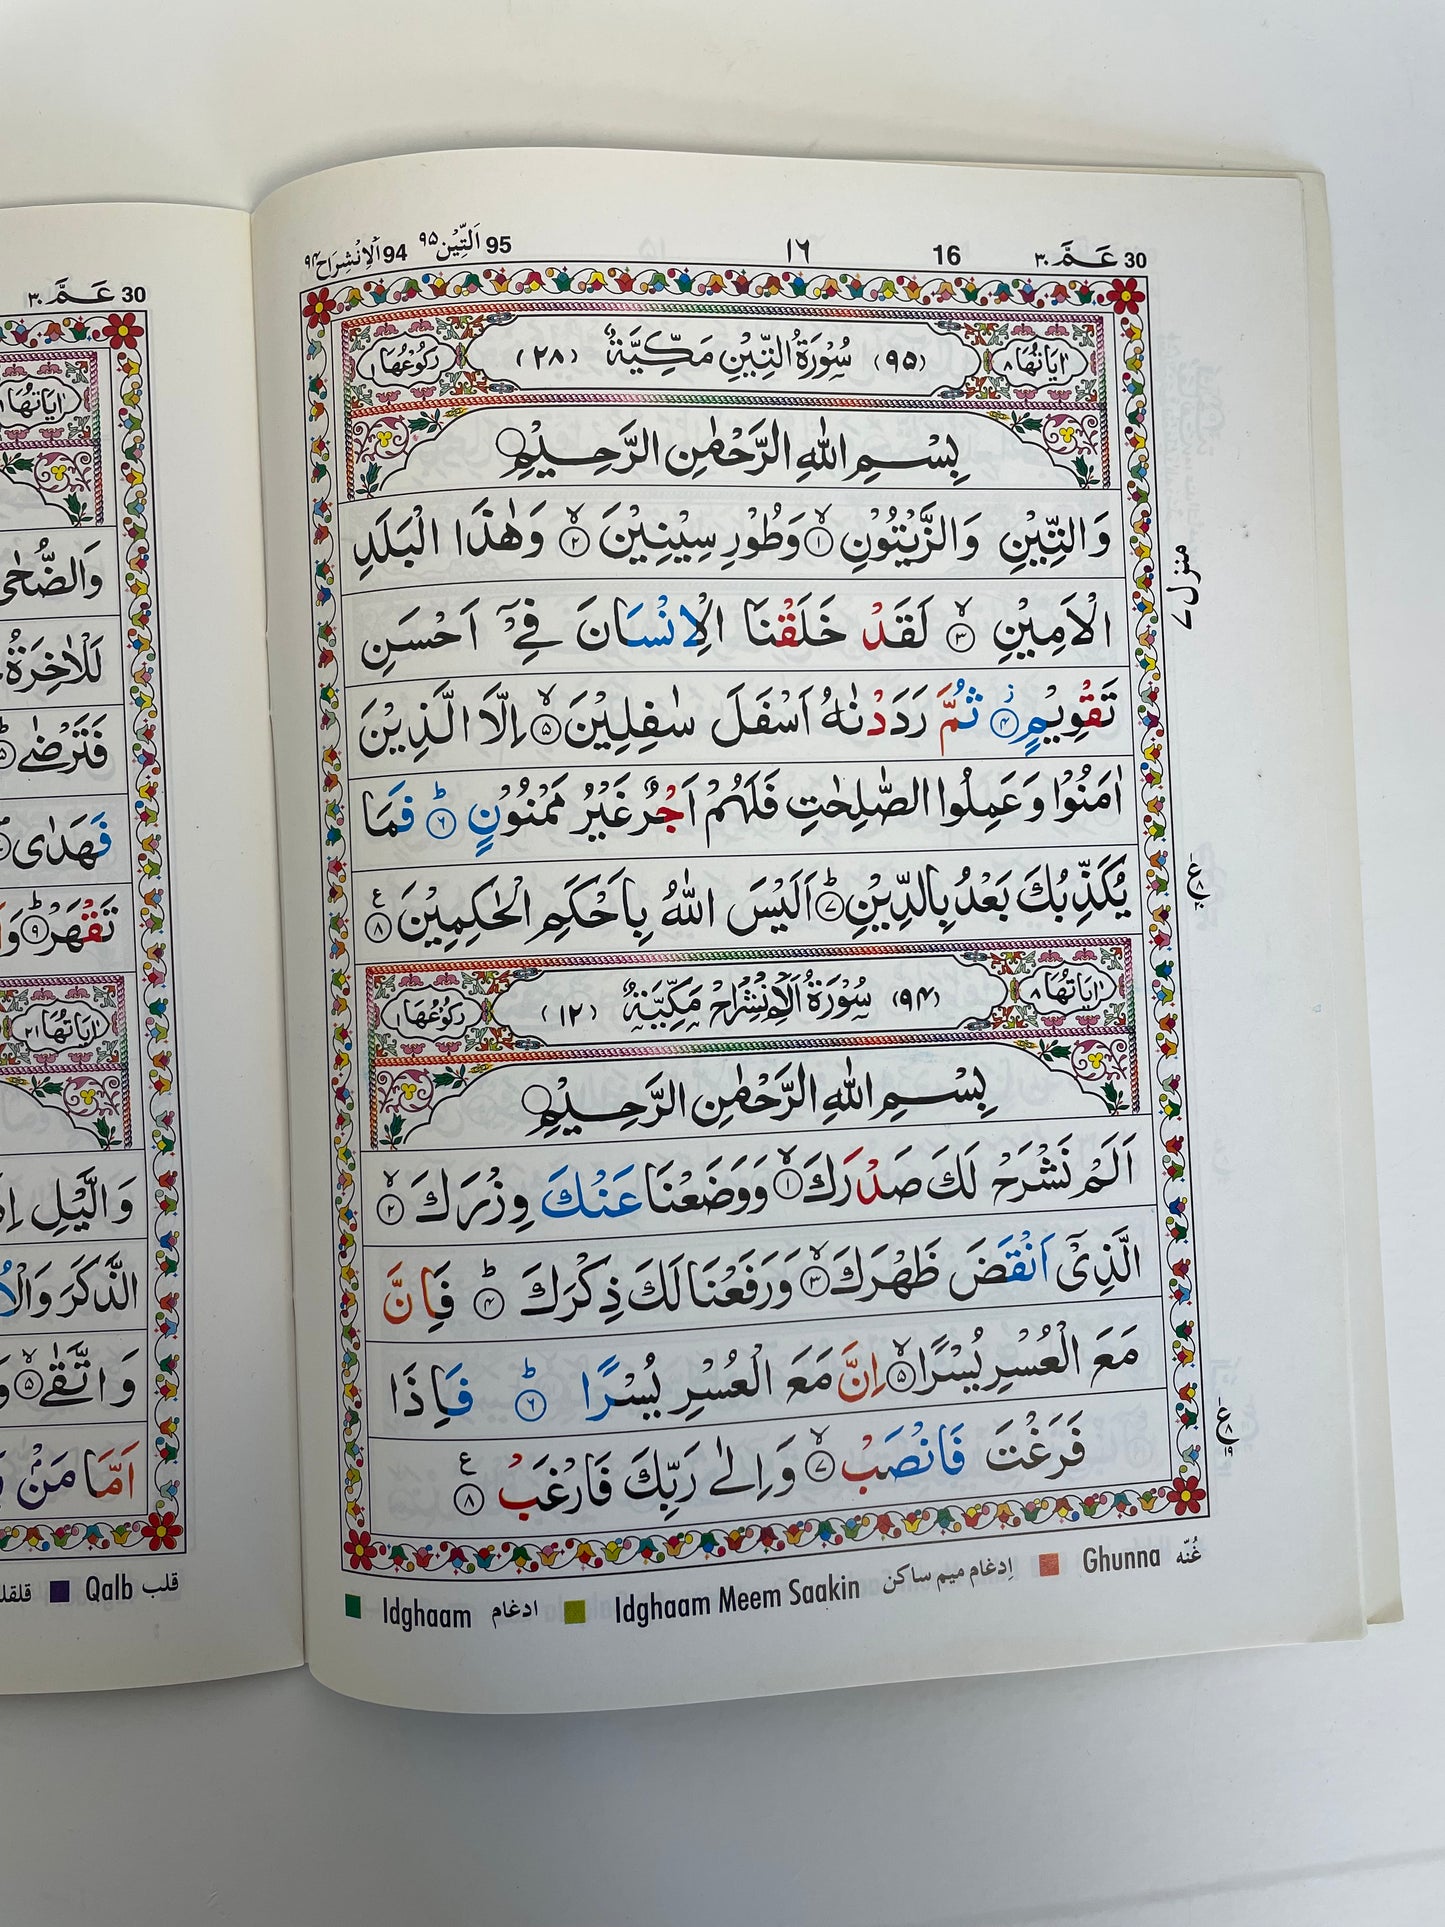 95 اَلتِّيْن ٩٥ 94 اَلْاِنْشِرَاح ٩٤
١٦ 16
30 عَـمَّ ٣٠
اٰيَاتُهَا ٨ (٩٥) سُوْرَةُ التِّيْنِ مَكِّيَّةٌ (٢٨) رُكُوْعُهَا ١
بِسْمِ اللّٰهِ الرَّحْمٰنِ الرَّحِيْمِ
وَالتِّيْنِ وَالزَّيْتُوْنِ ۙ١ وَطُوْرِ سِيْنِيْنَ ۙ٢ وَهٰذَا الْبَلَدِ
الْاَمِيْنِ ۙ٣ لَقَدْ خَلَقْنَا الْاِنْسَانَ فِيْۤ اَحْسَنِ
تَقْوِيْمٍ ؗ٤ ثُمَّ رَدَدْنٰهُ اَسْفَلَ سٰفِلِيْنَ ۙ٥ اِلَّا الَّذِيْنَ
اٰمَنُوْا وَعَمِلُوا الصّٰلِحٰتِ فَلَهُمْ اَجْرٌ غَيْرُ مَمْنُوْنٍ ؕ٦ فَمَا
يُكَذِّبُكَ بَعْدُ بِالدِّيْنِ ؕ٧ اَلَيْسَ اللّٰهُ بِاَحْكَمِ الْحٰكِمِيْنَ ٨ ع
اٰيَاتُهَا ٨ (٩٤) سُوْرَةُ اَلْاِنْشِرَاحْ مَكِّيَّةٌ (١٢) رُكُوْعُهَا ١
بِسْمِ اللّٰهِ الرَّحْمٰنِ الرَّحِيْمِ
اَلَمْ نَشْرَحْ لَكَ صَدْرَكَ ۙ١ وَوَضَعْنَا عَنْكَ وِزْرَكَ ۙ٢
الَّذِيْۤ اَنْقَضَ ظَهْرَكَ ۙ٣ وَرَفَعْنَا لَكَ ذِكْرَكَ ؕ٤ فَاِنَّ
مَعَ الْعُسْرِ يُسْرًا ۙ٥ اِنَّ مَعَ الْعُسْرِ يُسْرًا ؕ٦ فَاِذَا
فَرَغْتَ فَانْصَبْ ۙ٧ وَاِلٰى رَبِّكَ فَارْغَبْ ٨ ع
منزل ٧
Idghaam ادغام Idghaam Meem Saakin اِدغام میم ساکن Ghunna غُنّہ
30 عَـمَّ ٣٠
وَالضُّحٰى
لَلْاٰخِرَةُ
فَتَرْضٰى
فَهَدٰى
تَقْهَرْ ؕ٩
اٰيَاتُهَا ٢١
وَالَّيْلِ
الذَّكَرَ
وَاتَّقٰى ۙ٥
اَمَّا مَنْ
Qalb قلب